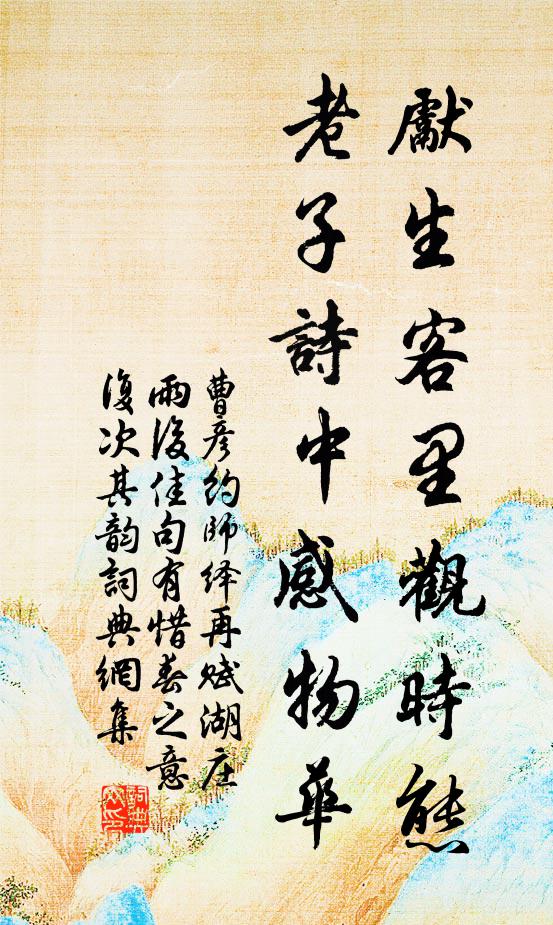 獻生客里觀時態
老子詩中感物華
曹彥約師绎再赋湖庄
雨後佳句有惜春之意
復次其韵詞典網集